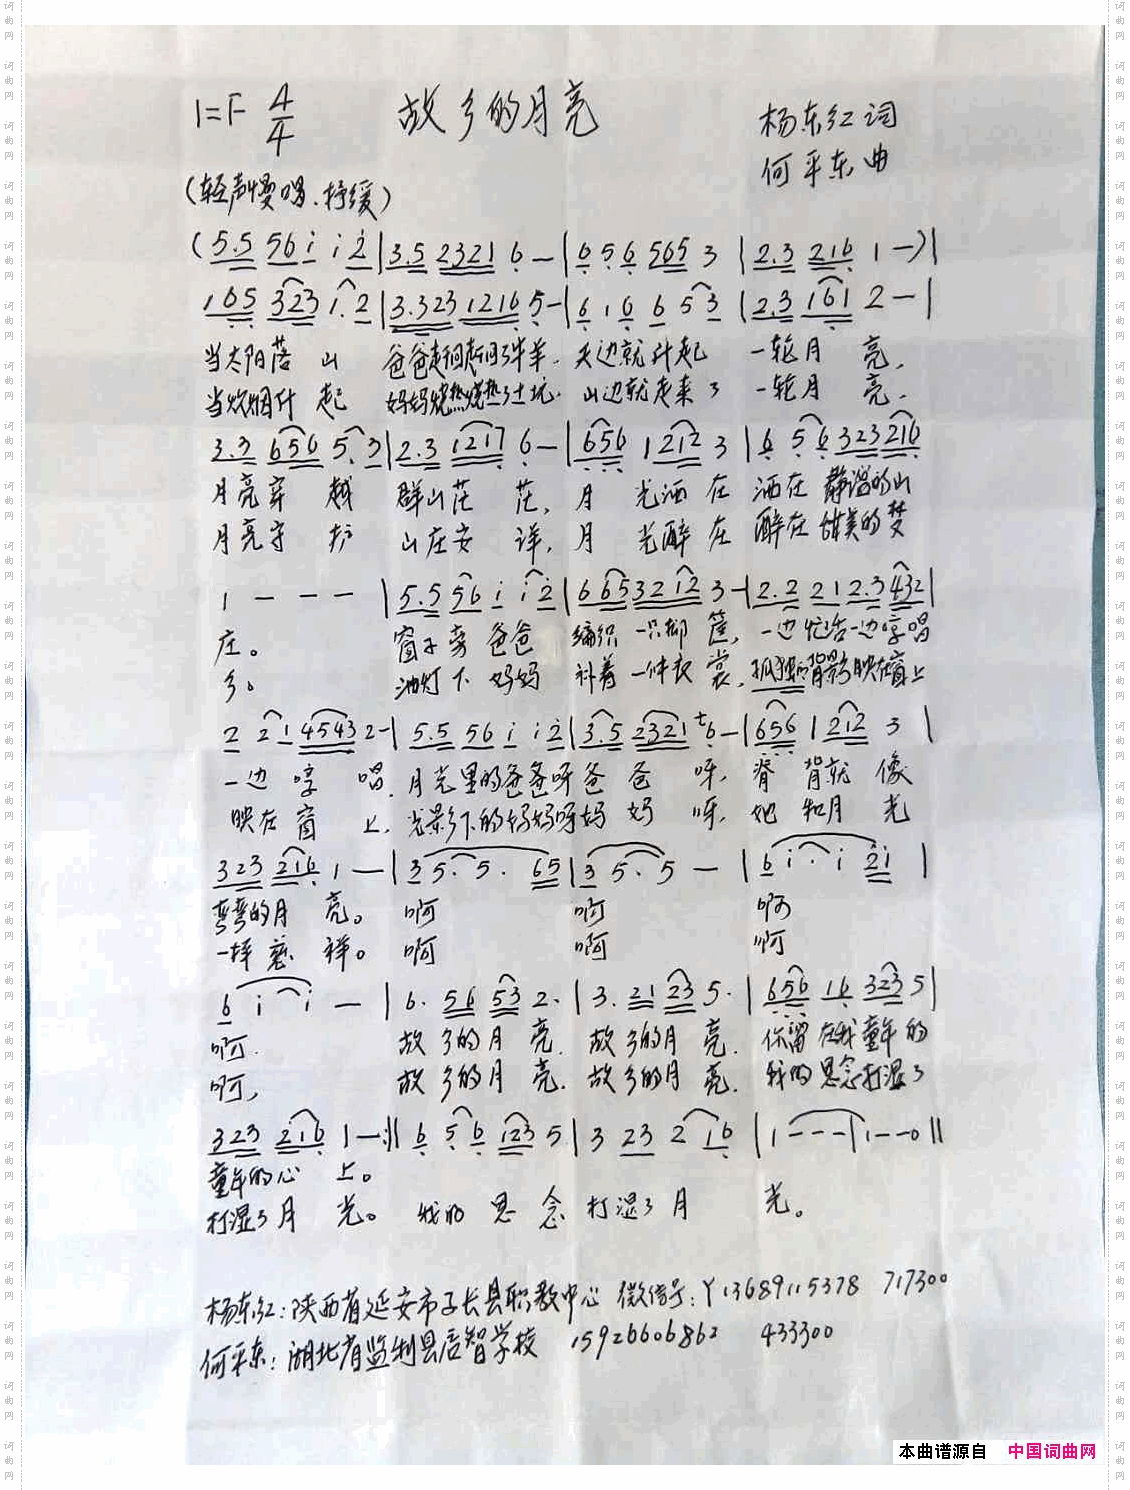 1=F 4/4 故乡的月亮 杨东红词
何平东曲
(轻声慢唱、抒缓)
(5.5 56 i i 2|3.5 2321 6 —|6 5 6 565 3|2.3 216 1 —)|
165 323 1. 2|3.323 1216 5—|6 1 6 6 5 3|2.3 161 2 —|
当太阳落 山 爸爸赶回赶回了牛羊. 天边就升起 一轮月 亮,
当炊烟升 起 妈妈烧热烧热了土坑. 山边就走来了 一轮月 亮.
3.3 656 5. 3|2.3 1217 6—|656 1 212 3|6 5 6 323 216
月亮穿 越 群山茫 茫, 月 光洒 在 洒在 静谧的山
月亮守 护 山庄安 详, 月 光醉 在 醉在 甜美的梦
1 — — —|5.5 56 i i 2|6 665 32 12 3—|2.2 21 2.3 432|
庄。 窗子旁 爸爸 编织 一只柳 筐, 一边忙活一边哼唱
乡。 油灯下 妈妈 补着 一件衣 裳, 孤独的背影映在窗上
2 2 1 4543 2—|5.5 56 i i 2|3.5 2321 6—|656 1 212 3|
一边 哼 唱. 月光里的爸爸呀爸 爸 呀, 脊 背就 像
映在 窗 上. 光影下的妈妈呀妈 妈 呀, 她 和月 光
323 216 1 —|3 5. 5. 65|3 5. 5 —|6 i. i 2i|
弯弯的月 亮。 啊 啊 啊
一样 慈 祥。 啊 啊 啊
6 i i —|6. 56 53 2.|3. 21 23 5.|656 16 323 5|
啊. 故 乡的月 亮. 故 乡的月 亮. 你留 在我童年的
啊, 故 乡的月 亮. 故 乡的月 亮. 我的思念打湿了
323 216 1—:|| 6 5 6 123 5|3 23 2 16|1 — — —|1 — — 0||
童年的心 上。
打湿了月 光。 我的 思 念 打湿了月 光。
杨东红:陕西省延安市子长县职教中心 微信号:Y13689115378 717300
何平东:湖北省监利县启智学校 15926606862 433300
本曲谱源自 中国词曲网